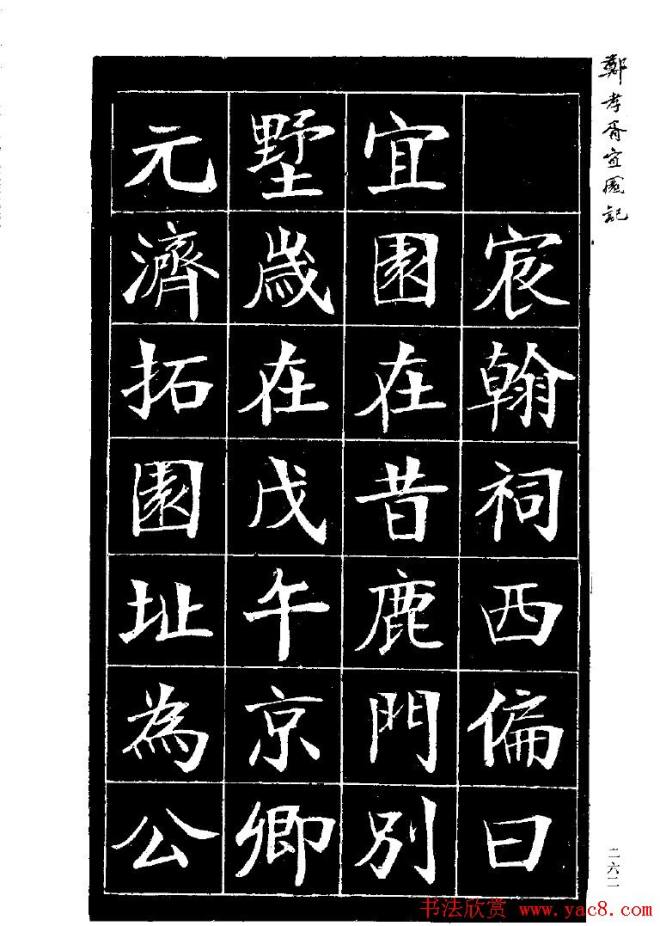 鄭孝胥宜園記
宸翰祠西偏曰
宜園在昔鹿門別
墅歲在戊午京卿
元濟拓園址為公
二六二
书法欣赏 www.yac8.com